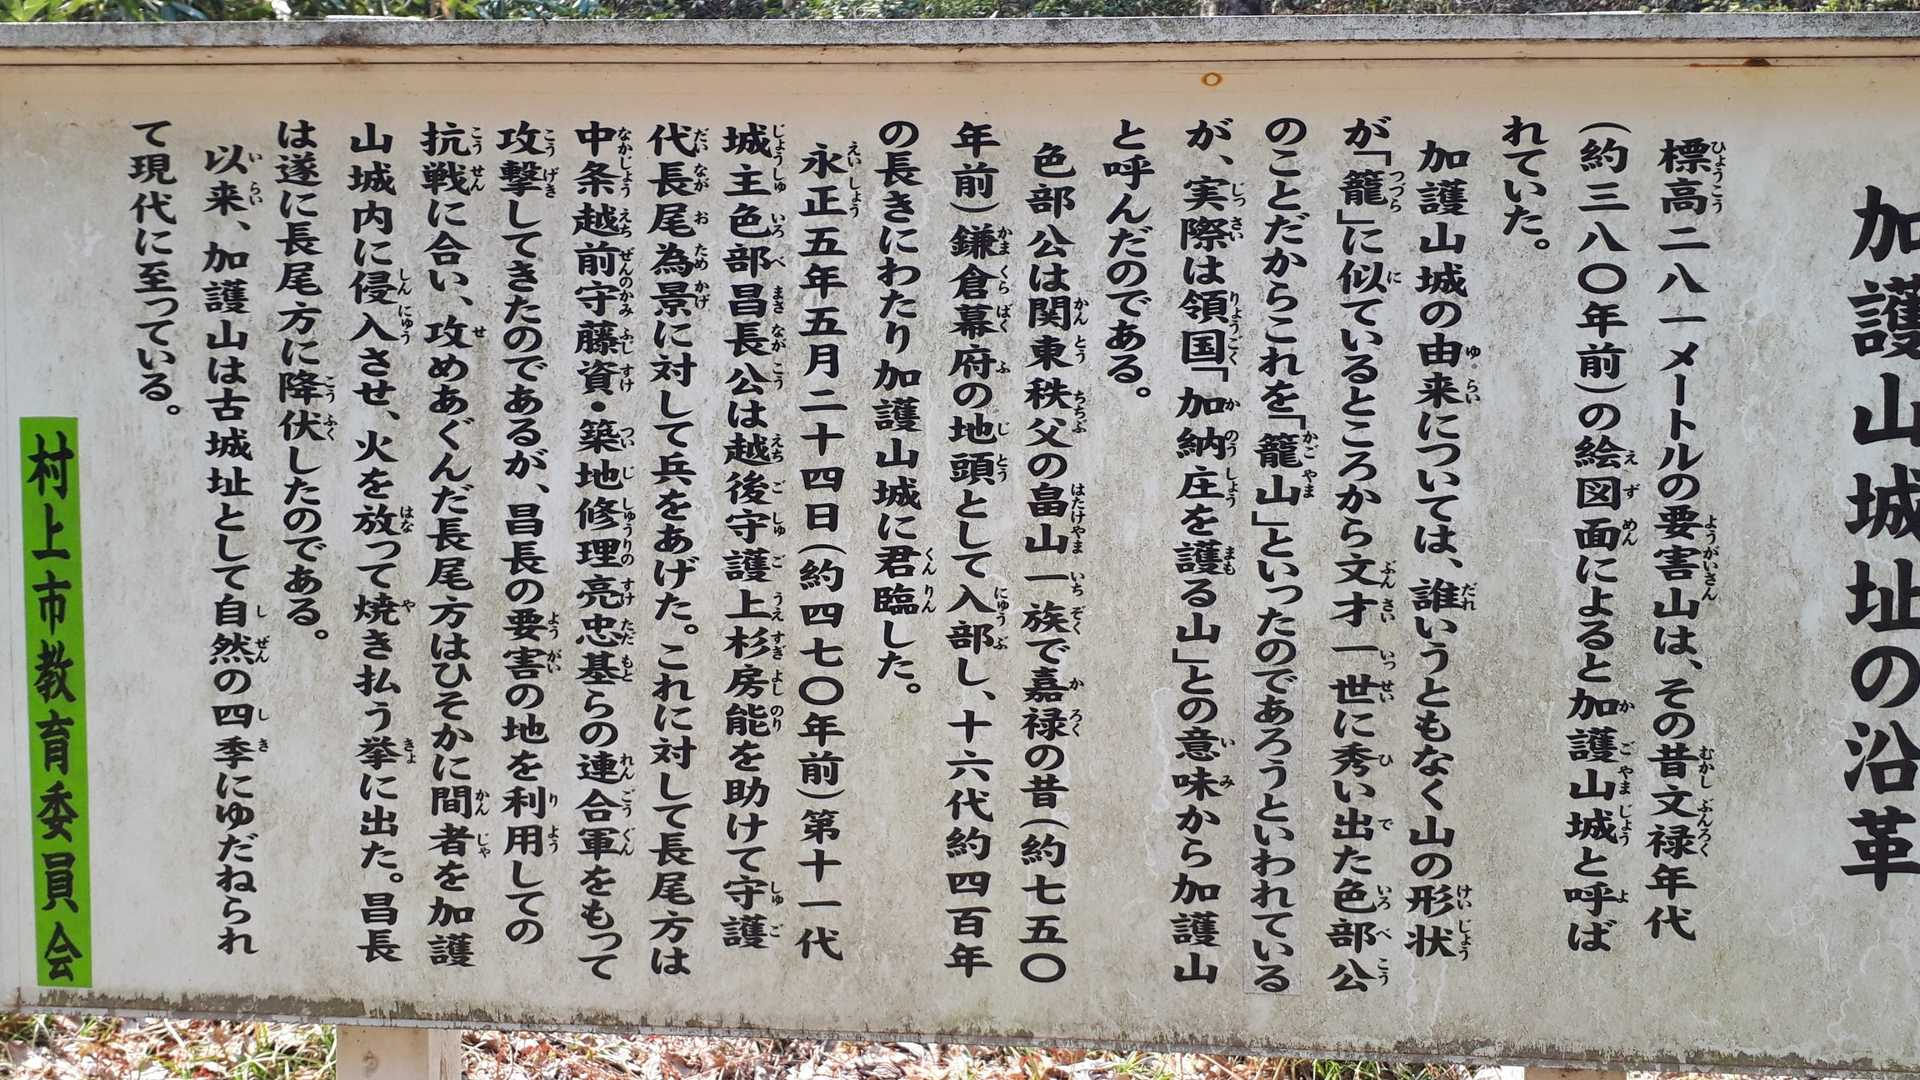 加護山城址の沿革
標高二八一メートルの要害山は、その昔文禄年代
(約三八〇年前)の絵図面によると加護山城と呼ば
れていた。
加護山城の由来については、誰いうともなく山の形状
が「籠」に似ているところから文才一世に秀い出た色部公
のことだからこれを「籠山」といったのであろうといわれている
が、実際は領国「加納庄を護る山」との意味から加護山
と呼んだのである。
色部公は関東秩父の畠山一族で嘉禄の昔(約七五〇
年前)鎌倉幕府の地頭として入部し、十六代約四百年
の長きにわたり加護山城に君臨した。
永正五年五月二十四日(約四七〇年前)第十一代
城主色部昌長公は越後守護上杉房能を助けて守護
代長尾為景に対して兵をあげた。これに対して長尾方は
中条越前守藤資・築地修理亮忠基らの連合軍をもって
攻撃してきたのであるが、昌長の要害の地を利用しての
抗戦に合い、攻めあぐんだ長尾方はひそかに間者を加護
山城内に侵入させ、火を放って焼き払う挙に出た。昌長
は遂に長尾方に降伏したのである。
以来、加護山は古城址として自然の四季にゆだねられ
て現代に至っている。
村上市教育委員会